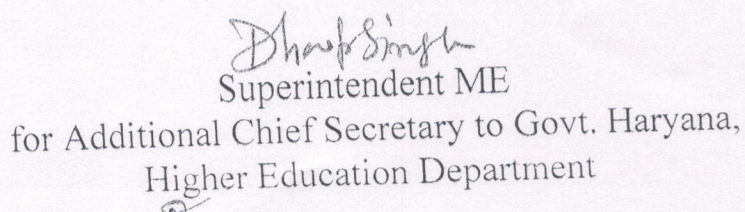 Singh
Superintendent ME
for Additional Chief Secretary to Govt. Haryana,
Higher Education Department